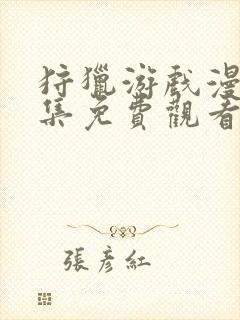 狩獵游戲漫
集免費觀看
張彥紅